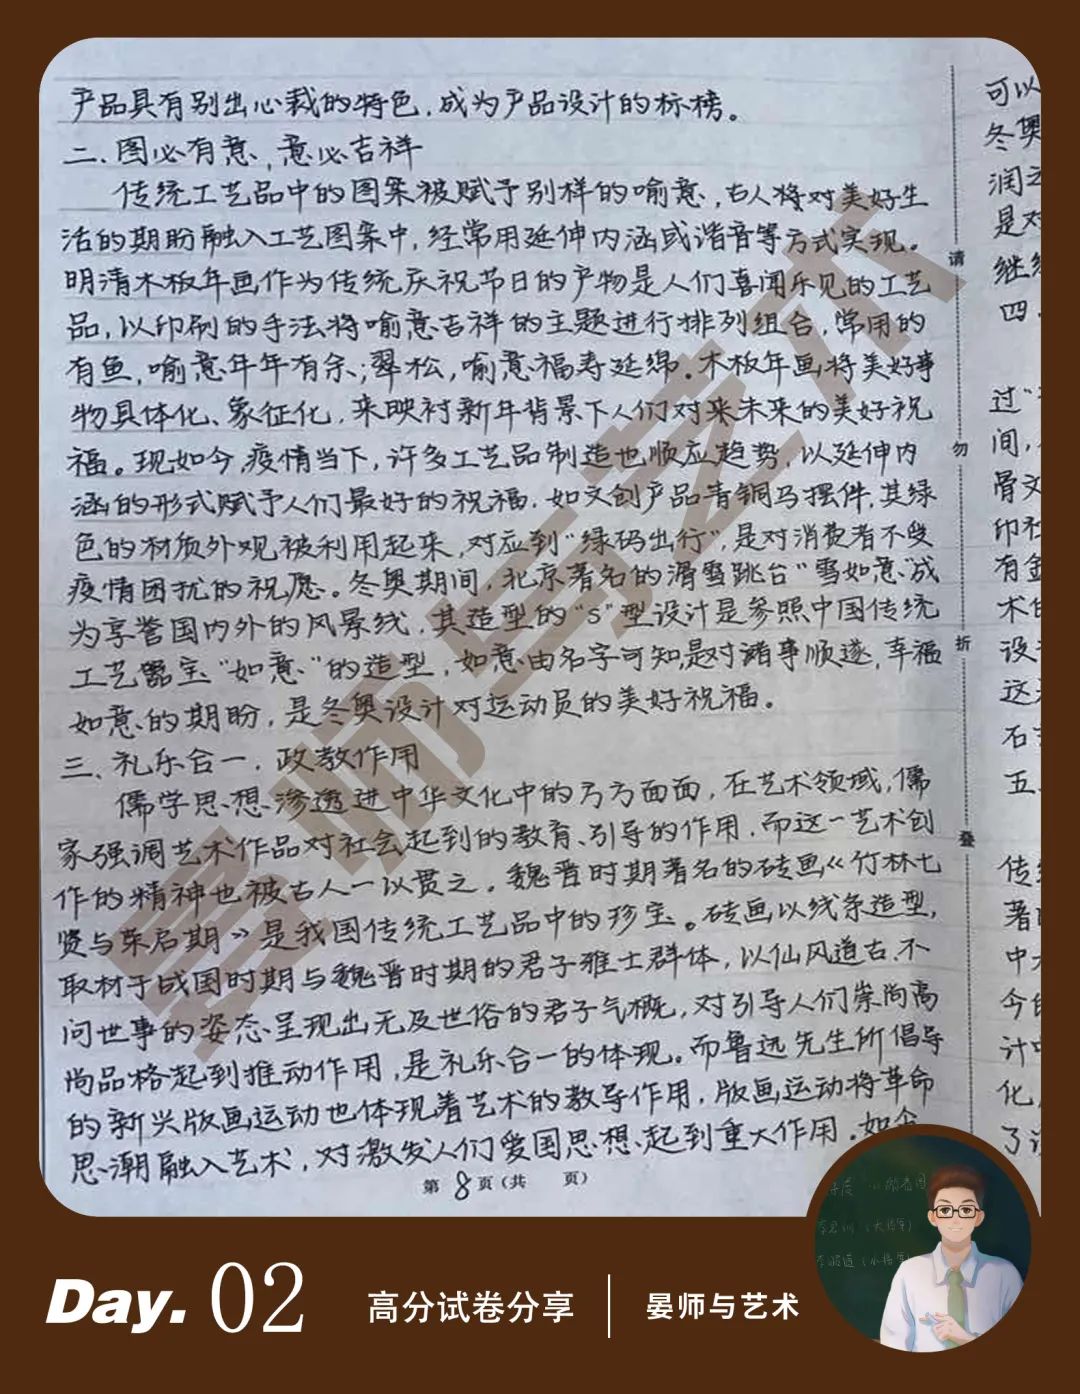 产品具有别出心裁的特色，成为产品设计的标榜。
二、图必有意，意必吉祥
传统工艺品中的图案被赋予别样的喻意，古人将对美好生
活的期盼融入工艺图案中，经常用延伸内涵或谐音等方式实现。
明清木板年画作为传统庆祝节日的产物是人们喜闻乐见的工艺
品，以印刷的手法将喻意吉祥的主题进行排列组合，常用的
有鱼，喻意年年有余；翠松，喻意福寿延绵。木板年画将美好事
物具体化、象征化，来映衬新年背景下人们对来未来的美好祝
福。现如今，疫情当下，许多工艺品制造也顺应趋势，以延伸内
涵的形式赋予人们最好的祝福，如文创产品青铜马摆件，其绿
色的材质外观被利用起来，对应到“绿码出行”，是对消费者不受
疫情困扰的祝愿。冬奥期间，北京著名的滑雪跳台“雪如意”成
为享誉国内外的风景线，其造型的“S”型设计是参照中国传统
工艺器宝“如意”的造型，如意由名字可知，是对诸事顺遂，幸福
如意的期盼，是冬奥设计对运动员的美好祝福。
三、礼乐合一，政教作用
儒学思想渗透进中华文化中的方方面面，在艺术领域，儒
家强调艺术作品对社会起到的教育、引导的作用，而这一艺术创
作的精神也被古人一以贯之。魏晋时期著名的砖画《竹林七
贤与荣启期》是我国传统工艺品中的珍宝。砖画以线条造型，
取材于战国时期与魏晋时期的君子雅士群体，以仙风道古、不
问世事的姿态呈现出无及世俗的君子气概，对引导人们崇尚高
尚品格起到推动作用，是礼乐合一的体现。而鲁迅先生所倡导
的新兴版画运动也体现着艺术的教导作用，版画运动将革命
思潮融入艺术，对激发人们爱国思想起到重大作用。如今
第 8 页（共 页）
请
勿
折
叠
可以
冬奥
是对
继续
四、
过“
间，
骨文
印社
有金
术的
设
这
石
五、
传统
著
中
今的
计
化，
了
晏师与艺术
Day. 02
高分试卷分享
晏师与艺术